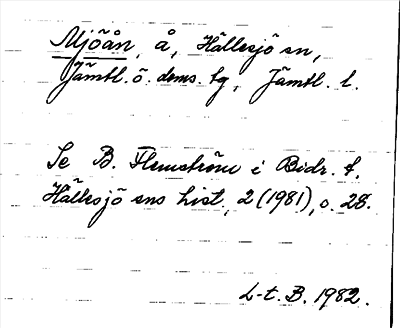 Mjöån, å, Hällesjö sn,
Jämtl. ö. doms. tg, Jämtl. l.
Se B. Flemström i Bidr. t.
Hällesjö sns hist, 2 (1981), s. 28.
L-t. B. 1982.